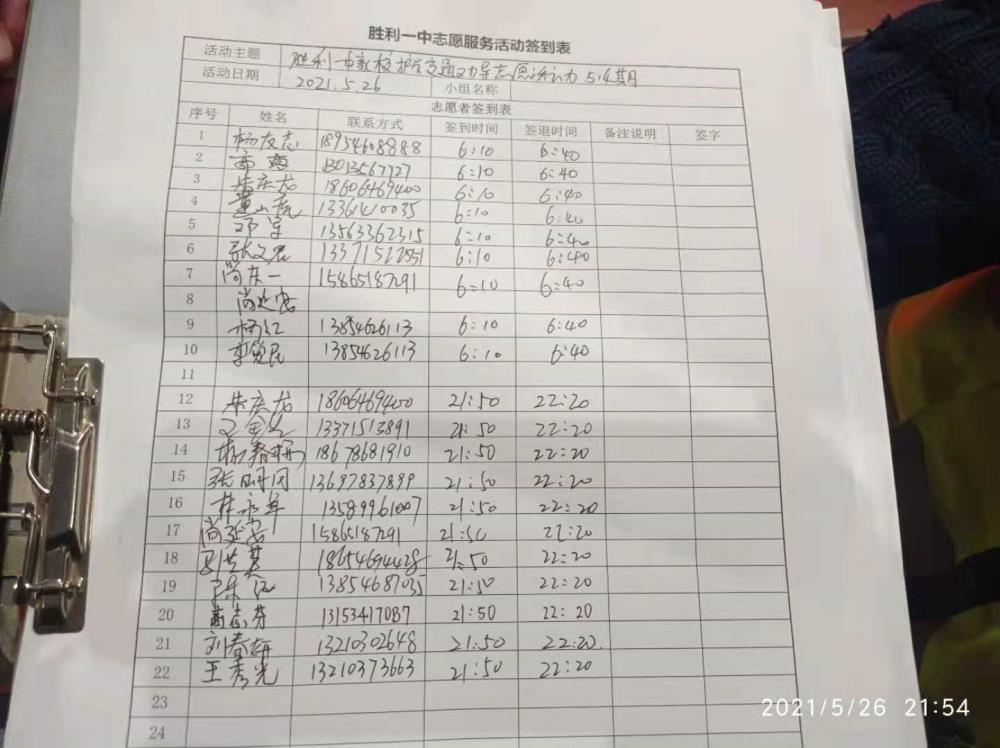 胜利一中志愿服务活动签到表
活动主题 胜利一中家校护学交通疏导志愿活动 54期
活动日期 2021.5.26 小组名称
志愿者签到表
序号 姓名 联系方式 签到时间 签退时间 备注说明 签字
1 杨友志 18954608888 6:10 6:40
2 13013567727 6:10 6:40
3 朱庆龙 18606469400 6:10 6:40
4 13361410035 6:10 6:40
5 邓军 13563362315 6:10 6:40
6 13371527551 6:10 6:40
7 尚庆一 15865187291 6:10 6:40
8 尚延安
9 杨红 13854626113 6:10 6:40
10 13854626113 6:10 6:40
11
12 朱庆龙 18606469400 21:50 22:20
13 13371513891 21:50 22:20
14 杨春梅 18678681910 21:50 22:20
15 张丽团 13697837899 21:50 22:20
16 林永军 13589961007 21:50 22:20
17 尚延安 15865187291 21:50 22:20
18 刘兰英 18654694428 21:50 22:20
19 13854687035 21:50 22:20
20 13153417087 21:50 22:20
21 刘春妍 13210302648 21:50 22:20
22 王秀光 13210373663 21:50 22:20
23
24
2021/5/26 21:54